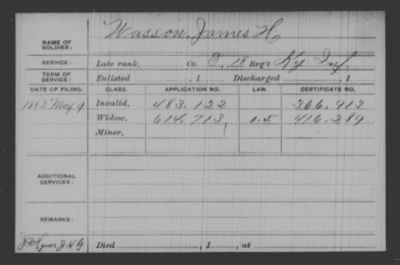 NAME OF SOLDIER: Wasson, James H
SERVICE: Late rank, Co. E, 18 Reg't Ky Inf.
TERM OF SERVICE: Enlisted , 1 Discharged , 1
DATE OF FILING. CLASS. APPLICATION NO. LAW. CERTIFICATE NO.
1883 May 9 Invalid, 483.122 366.913
Widow, 614,713, 416.289
Minor,
ADDITIONAL SERVICES:
REMARKS:
Died , 1 , at